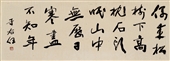 偶來松
樹下高
枕石頭
眠山中
無曆日
寒盡
不知年
于右任